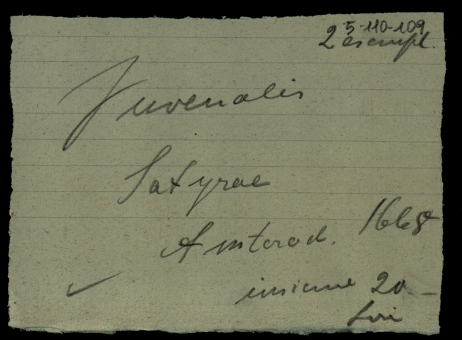 5-110-109
2 esempl.
Juvenalis
Satyrae
Amsterod. 1668
insieme 20